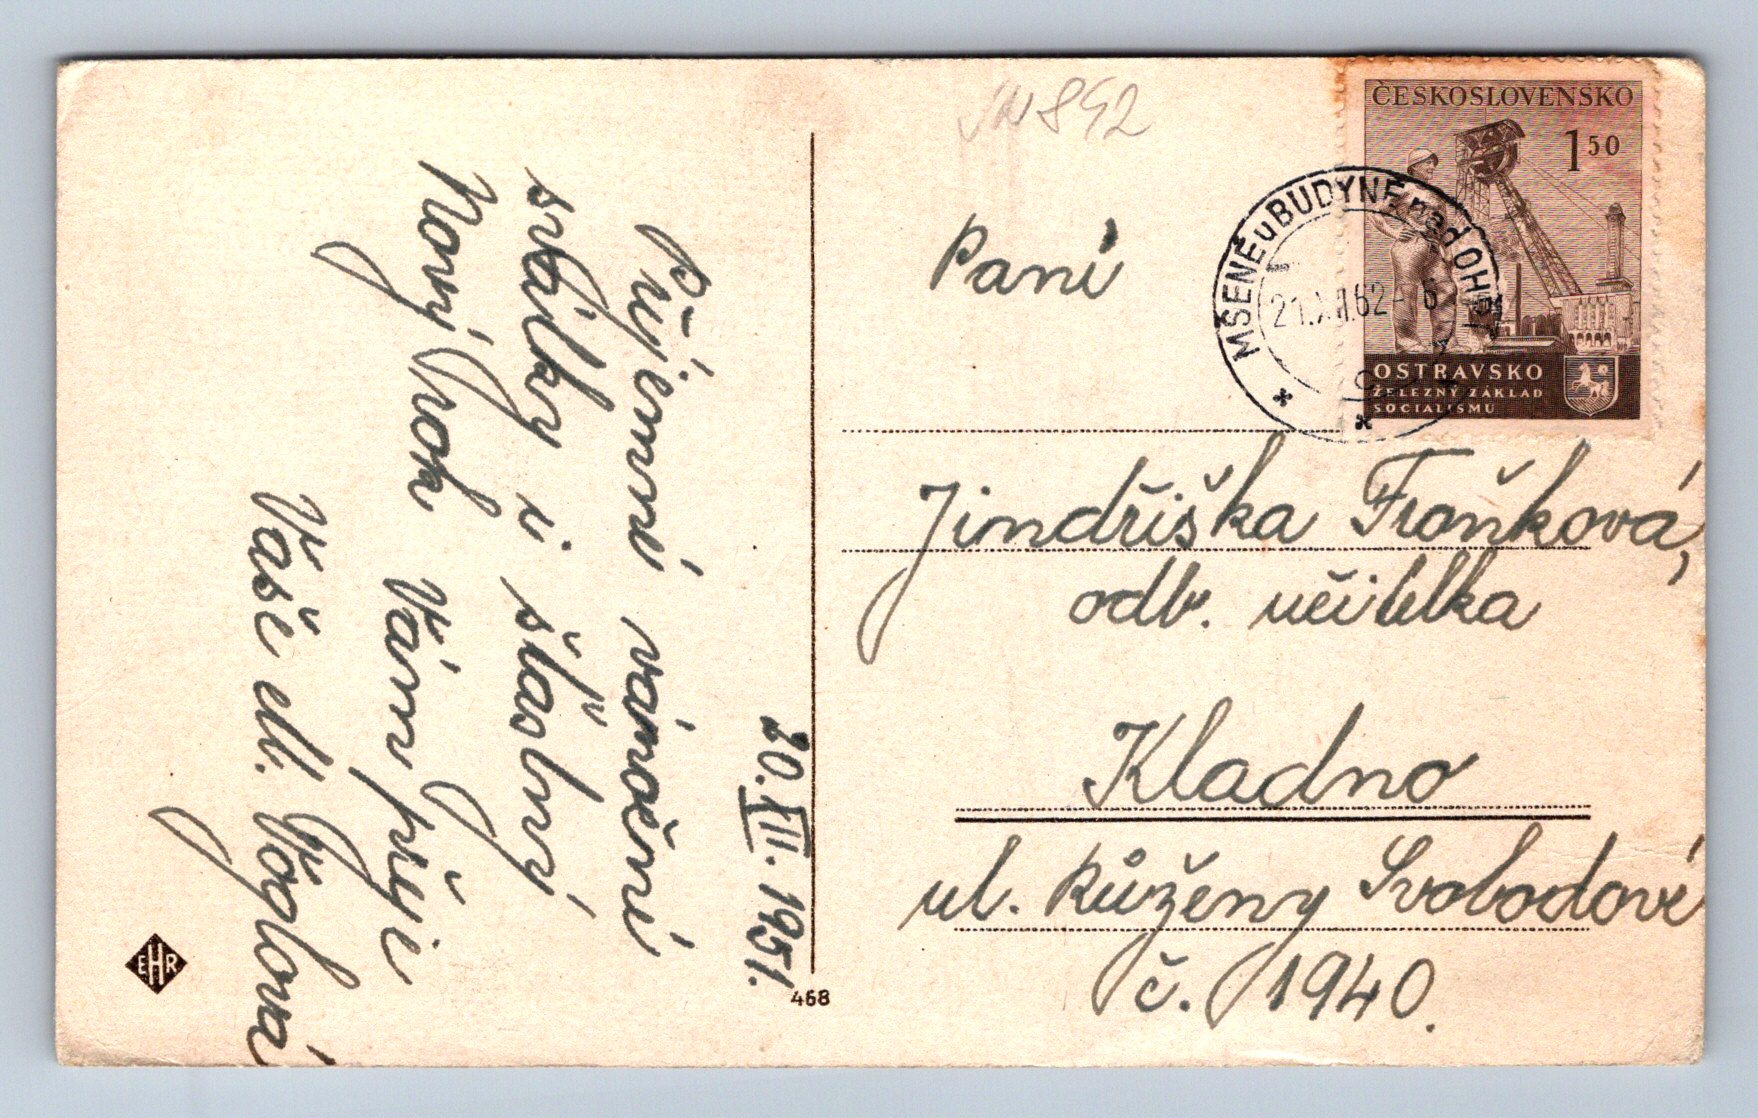 20.XII. 1951.
Příjemné vánoční
svátky a šťastný
Nový rok Vám přeje
Vaší dl. Voglová
468
EHR
ČESKOSLOVENSKO
1 50
OSTRAVSKO
ŽELEZNÝ ZÁKLAD
SOCIALISMU
MŠENÉ u BUDYNĚ nad OHŘ
21.XII.62-6
Paní
Jindřiška Froňková,
odb. učitelka
Kladno
ul. Růženy Svobodové
č. 1940.